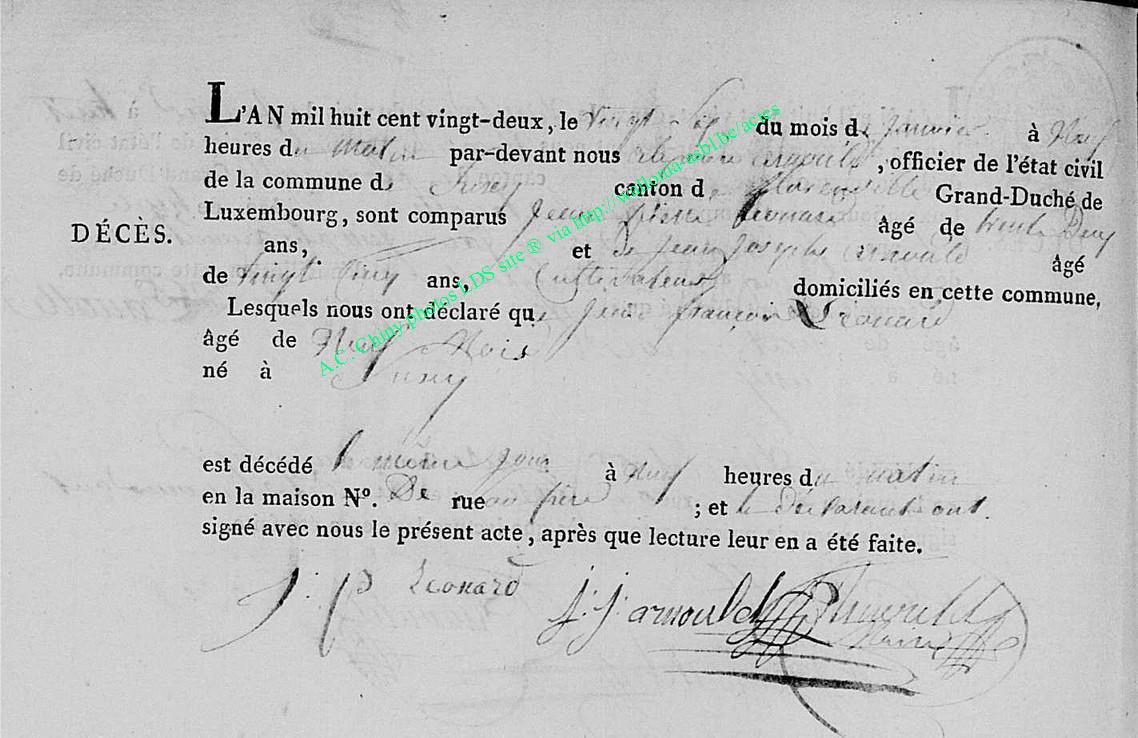 L'AN mil huit cent vingt-deux, le vingt Six du mois de Janvier à Neuf
heures du Matin par-devant nous arnould, officier de l'état civil
de la commune de Suxy canton de florenville Grand-Duché de
Luxembourg, sont comparus Jean pierre Leonard Âgé de trente Deux
DÉCÈS.
ans, et Jean Joseph arnould âgé
de vingt Cinq ans, Cultivateurs domiciliés en cette commune,
Lesquels nous ont déclaré que Jean françois Léonard
Âgé de Neuf Mois
né à Suxy
est décédé le même jour à Neuf heures du matin
en la maison N°. De rue son père ; et le Déclarant ont
signé avec nous le présent acte, après que lecture leur en a été faite.
J: P Leonard J: J: arnould
A.C. Chiny photos LDS site ® via http://wallonia-asbl.be/actes